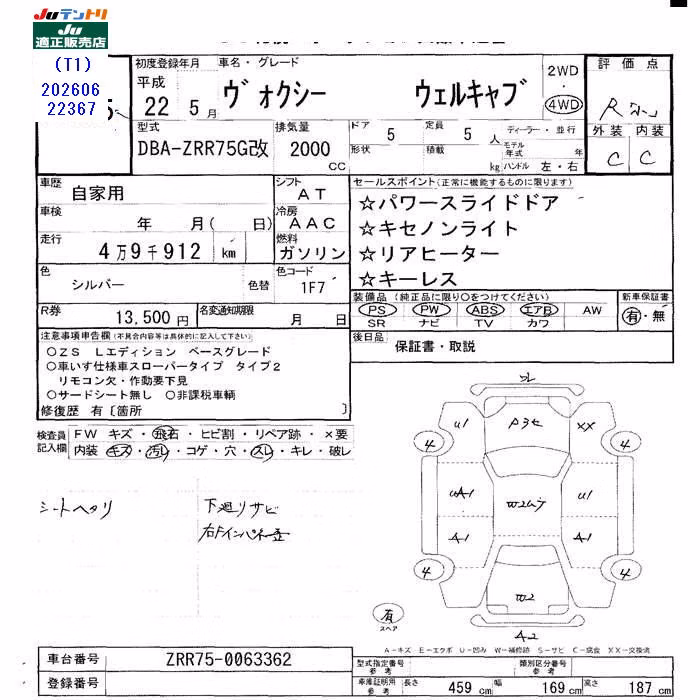 JUテントリ
JU
適正販売店
(T1)
202606
22367
初度登録年月
車名・グレード
平成
22 5月
ヴォクシー ウェルキャブ
2WD
4WD
評価点
R
外装 内装
C C
型式
DBA-ZRR75G改
排気量
2000 CC
ドア 5 定員 5 人
形状 積載 kg
ディーラー・並行
モデル年式 年
ハンドル 左・右
車歴 自家用
シフト AT
車検 年 月( 日)
冷房 AAC
走行 4万9千912 km
燃料 ガソリン
色 シルバー 色替
色コード 1F7
R券 13,500円
名変通知期限 月 日
セールスポイント(正常に機能するものに限ります)
☆パワースライドドア
☆キセノンライト
☆リアヒーター
☆キーレス
装備品 (純正品に限り○をつけてください)
PS PW ABS エアB AW
SR ナビ TV カワ
新車保証書
有・無
後日品 保証書・取説
注意事項申告欄(不具合内容等は具体的に記入して下さい)
○ZS Lエディション ベースグレード
○車いす仕様車スローパータイプ タイプ2
リモコン欠・作動要下見
○サードシート無し ○非課税車輌
修復歴 有〔箇所 〕
検査員記入欄
FW キズ・飛石・ヒビ割・リペア跡・×要
内装 キズ・汚レ・コゲ・穴・スレ・キレ・破レ
シートヘタリ
下廻りサビ
U1 XX
4 4
UA1 U1
A1 A1
4 4
W2
A2
有
スペア
A-キズ E-エクボ U-凹み W-補修跡 S-サビ C-腐食 XX-交換済
車台番号 ZRR75-0063362
登録番号
型式指定番号 参考
類別区分番号 参考
車庫証明用 参考
長さ 459 cm 幅 169 cm 高さ 187 cm